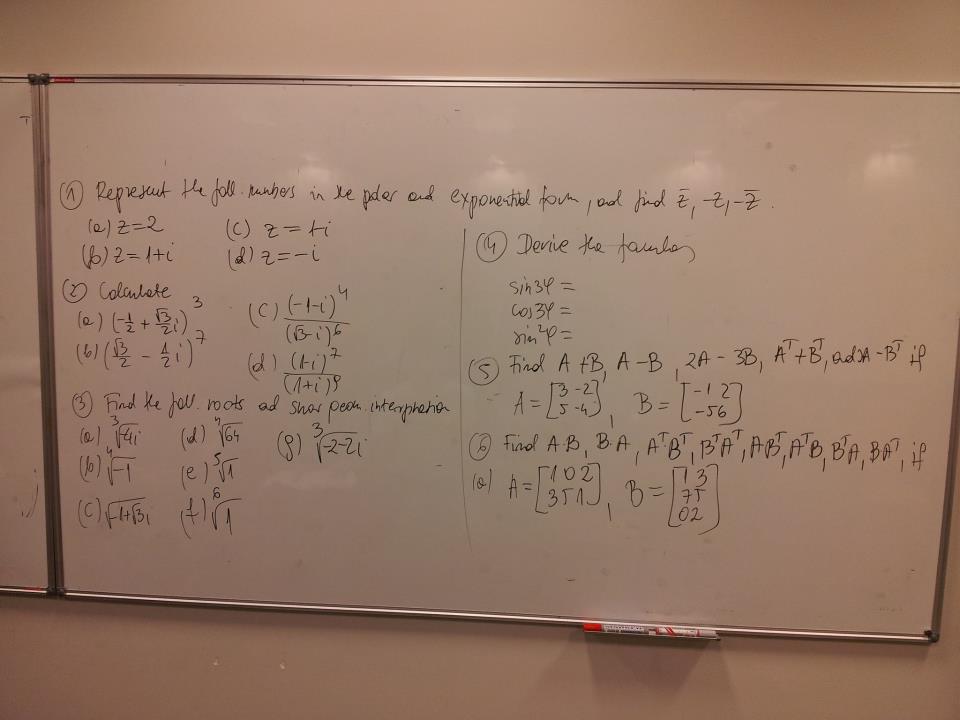 (1) Represent the foll. numbers in the polar and exponential form, and find z̄, -z, -z̄.
(a) z=2 (c) z=1-i
(b) z=1+i (d) z=-i
(2) Calculate
(a) (-1/2 + √3/2 i)^3 (c) (-1-i)^4/(√3-i)^6
(b) (√3/2 - 1/2 i)^7 (d) (1-i)^7/(1+i)^9
(3) Find the foll. roots ad show geom. interpretation
(a) ∛-4i (d) ∜64 (g) ∛-2-2i
(b) ∜-1 (e) ⁵√1
(c) √-1+√3i (f) ⁶√1
(4) Derive the formulas
sin3φ =
cos3φ =
sin²φ =
(5) Find A+B, A-B, 2A-3B, Aᵀ+Bᵀ, ad A-Bᵀ if
A = [3 -2; 5 -4], B = [-1 2; -5 6]
(6) Find A·B, B·A, Aᵀ·Bᵀ, BᵀAᵀ, ABᵀ, AᵀB, BᵀA, BAᵀ, if
(a) A = [1 0 2; 3 5 1], B = [1 3; 7 5; 0 2]